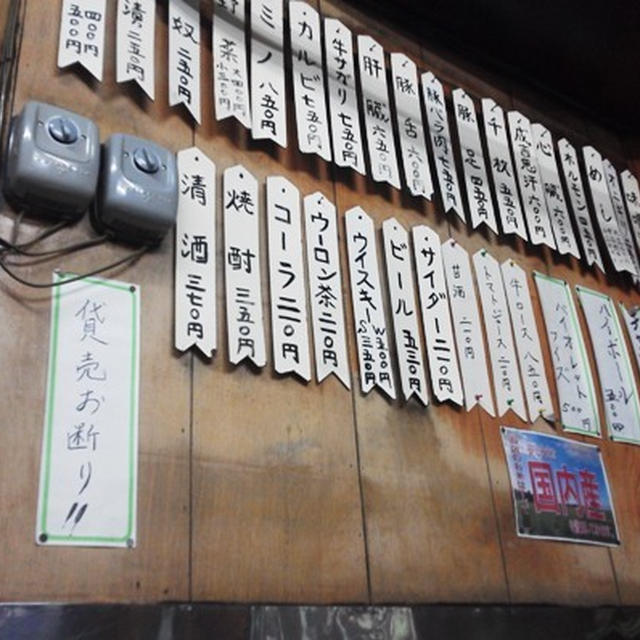 四〇〇円
五〇〇円
漬 二五〇円
奴 二五〇円
野菜
ミノ 八五〇円
カルビ 七五〇円
牛サガリ 七五〇円
肝臓 六五〇円
豚舌 六〇〇円
豚バラ肉 七五〇円
豚足 四五〇円
千枚 五五〇円
成吉思汗 六〇〇円
心臓 六〇〇円
ホルモン 四五〇円
めし
清酒 三七〇円
焼酎 三五〇円
コーラ 二一〇円
ウーロン茶 二一〇円
ウイスキー W五〇〇円 S三五〇円
ビール 五三〇円
サイダー 二一〇円
甘酒 二一〇円
トマトジュース 二一〇円
牛ロース 八五〇円
バイオレットフィズ 500円
ハイボール 500円
貸売お断り!!
国内産